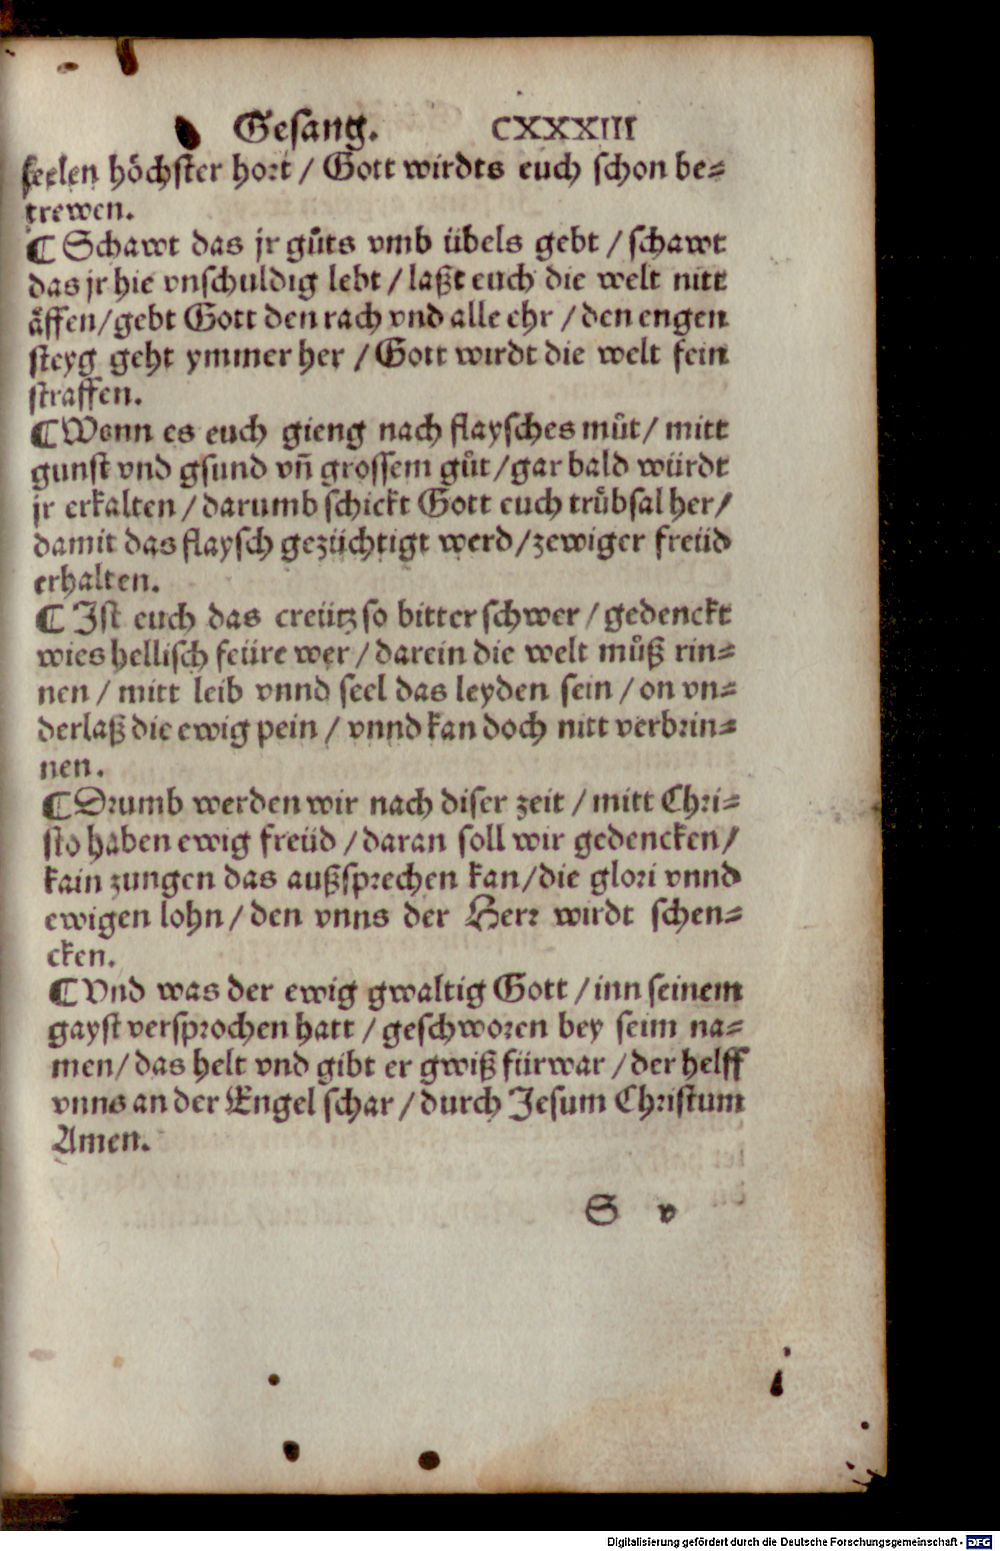 Gesang. CXXXIII
seelen höchster hort / Gott wirdts euch schon be⸗
trewen.
¶ Schawt das jr gůts vmb übels gebt / schawt
das jr hie vnschuldig lebt / laßt euch die welt nitt
äffen / gebt Gott den rach vnd alle ehr / den engen
steyg geht ymmer her / Gott wirdt die welt fein
straffen.
¶ Wenn es euch gieng nach flaysches můt / mitt
gunst vnd gsund vñ grossem gůt / gar bald würdt
jr erkalten / darumb schickt Gott euch trůbsal her /
damit das flaysch gezüchtigt werd / zewiger freüd
erhalten.
¶ Ist euch das creütz so bitter schwer / gedenckt
wies hellisch feüre wer / darein die welt můß rin⸗
nen / mitt leib vnnd seel das leyden sein / on vn⸗
derlaß die ewig pein / vnnd kan doch nitt verbrin⸗
nen.
¶ Drumb werden wir nach diser zeit / mitt Chri⸗
sto haben ewig freüd / daran soll wir gedencken /
kain zungen das außsprechen kan / die glori vnnd
ewigen lohn / den vnns der Herr wirdt schen⸗
cken.
¶ Vnd was der ewig gwaltig Gott / inn seinem
gayst versprochen hatt / geschworen bey seim na⸗
men / das helt vnd gibt er gwiß fürwar / der helff
vnns an der Engel schar / durch Jesum Christum
Amen.
S v
Digitalisierung gefördert durch die Deutsche Forschungsgemeinschaft - DFG